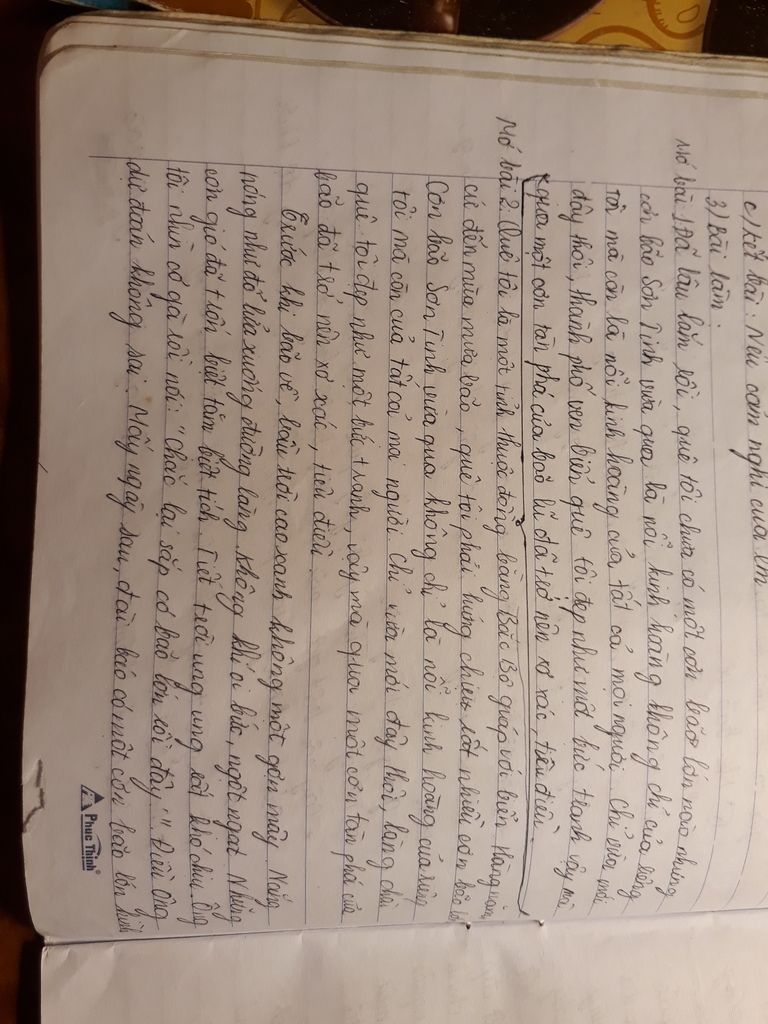 c) Kết bài: Nêu cảm nghĩ của em
3) Bài làm:
Mở bài 1: Đã lâu lắm rồi, quê tôi chưa có một cơn bão lớn nào nhưng
cơn bão Sơn Tinh vừa qua là nỗi kinh hoàng không chỉ của riêng
tôi mà còn là nỗi kinh hoàng của tất cả mọi người. Chỉ vừa mới
đây thôi, thành phố ven biển quê tôi đẹp như một bức tranh vậy mà
qua một cơn tàn phá của bão lũ đã trở nên xơ xác, tiêu điều
Mở bài 2: Quê tôi là một tỉnh thuộc đồng bằng Bắc Bộ giáp với biển. Hàng năm,
cứ đến mùa mưa bão, quê tôi phải hứng chịu rất nhiều cơn bão lớn
Cơn bão Sơn Tinh vừa qua không chỉ là nỗi kinh hoàng của riêng
tôi mà còn của tất cả mọi người. Chỉ vừa mới đây thôi, làng chài
quê tôi đẹp như một bức tranh, vậy mà qua một cơn tàn phá của
bão đã trở nên xơ xác, tiêu điều.
Trước khi bão về, bầu trời cao xanh không một gợn mây. Nắng
nóng như đổ lửa xuống đường làng. Không khí oi bức, ngột ngạt. Những
cơn gió đã trốn biệt tăm biệt tích. Tiết trời ung ung rất khó chịu. Ông
tôi nhìn cỏ gà rồi nói: "Chắc lại sắp có bão lớn rồi đây". Điều ông
dự đoán không sai. Mấy ngày sau, đài báo có một cơn bão lớn hình
Phuc Thinh